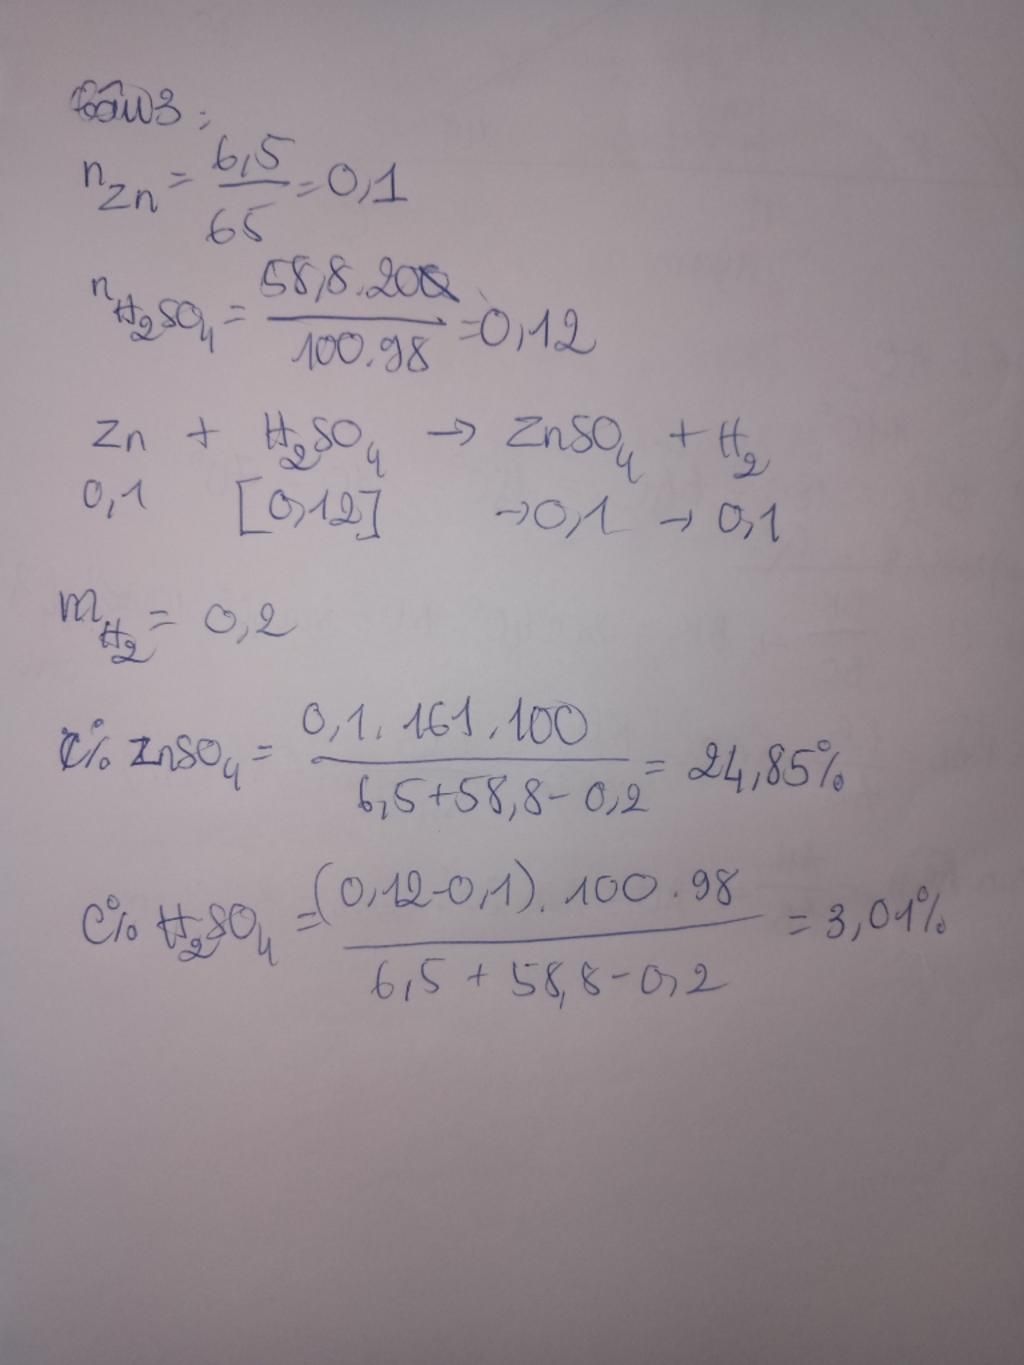 Bài 3:
nZn = 6,5/65 = 0,1
nH₂SO₄ = 58,8.20/100.98 = 0,12
Zn + H₂SO₄ → ZnSO₄ + H₂
0,1 [0,12] →0,1 → 0,1
mH₂ = 0,2
C% ZnSO₄ = 0,1.161.100/6,5+58,8-0,2 = 24,85%
C% H₂SO₄ = (0,12-0,1).100.98/6,5+58,8-0,2 = 3,01%